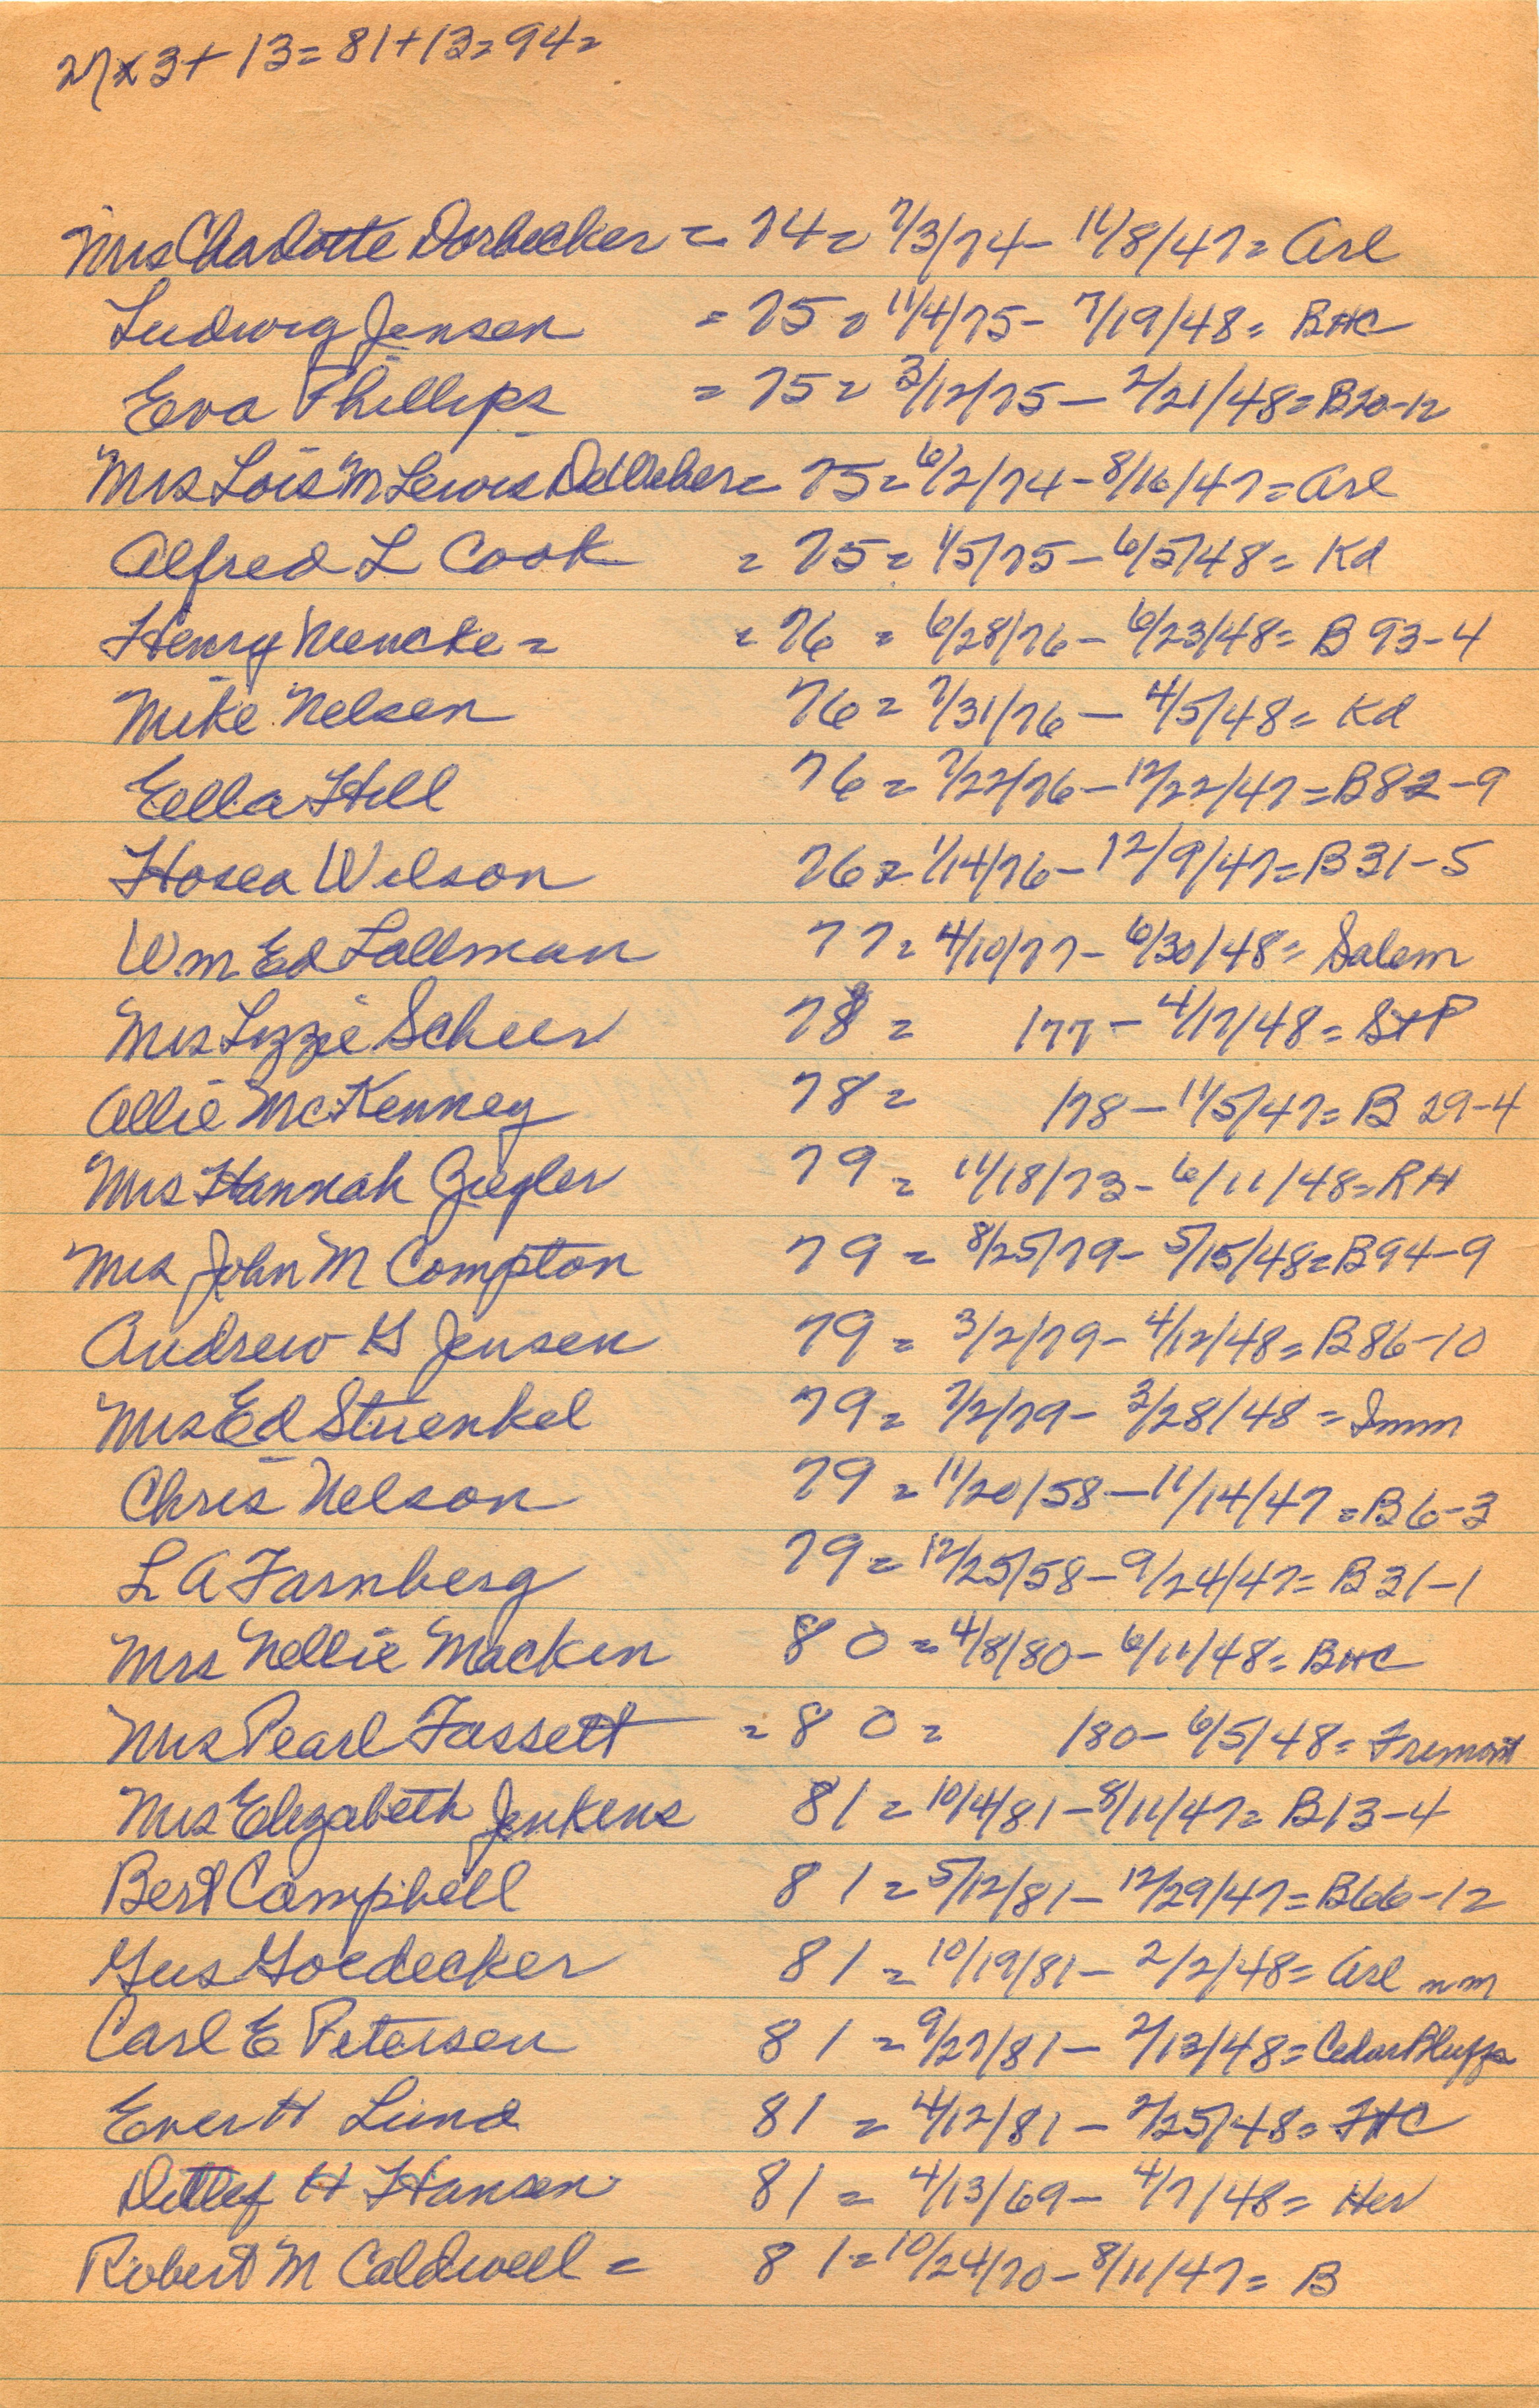 27 x 3 + 13 = 81 + 13 = 94 =
Mrs Charlotte Dorbecker = 74 = 7/3/74 - 11/8/47 = Arl
Ludwig Jensen = 75 = 11/4/75 - 7/19/48 = BHC
Eva Phillips = 75 = 3/12/75 - 2/21/48 = B20-12
Mrs Lois M Lewis = 75 = 6/2/74 - 8/16/47 = Arl
Alfred L Cook = 75 = 1/5/75 - 6/5/48 = Kd
Henry Mencke = = 76 = 6/28/76 - 6/23/48 = B 93-4
Mike Nelsen 76 = 7/31/76 - 4/5/48 = Kd
Eella Hill 76 = 7/22/76 - 12/22/47 = B82-9
Hosea Wilson 76 = 1/14/76 - 12/9/47 = B31-5
Wm Ed Lallman 77 = 4/10/77 - 6/30/48 = Salem
Mrs Lizzie Scheer 78 = 177 - 4/17/48 = StP
Allie McKenney 78 = 178 - 11/5/47 = B 29-4
Mrs Hannah Ziegler 79 = 11/18/73 - 6/11/48 = RH
Mrs John M Compton 79 = 8/25/79 - 5/15/48 = B94-9
Andrew G Jensen 79 = 3/2/79 - 4/12/48 = B86-10
Mrs Ed Stuenkel 79 = 7/2/79 - 3/28/48 = Imm
Chris Nelson 79 = 11/20/58 - 11/14/47 = B6-3
L A Farnberg 79 = 12/25/58 - 9/24/47 = B31-1
Mrs Nellie Macken 80 = 4/8/80 - 6/11/48 = BHC
Mrs Pearl Fassett = 80 = 180 - 6/5/48 = Fremont
Mrs Elizabeth Jenkens 81 = 10/4/81 - 8/11/47 = B13-4
Bert Campbell 81 = 5/12/81 - 12/29/47 = B66-12
Gus Goedecker 81 = 10/19/81 - 2/2/48 = Arl nm
Carl E Petersen 81 = 9/27/81 - 2/13/48 = Cedar Bluffs
Ever H Lund 81 = 4/12/81 - 2/25/48 = FHC
Detlef H Hansen 81 = 4/13/69 - 4/7/48 = Her
Robert M Caldwell = 81 = 10/24/70 - 8/11/47 = B